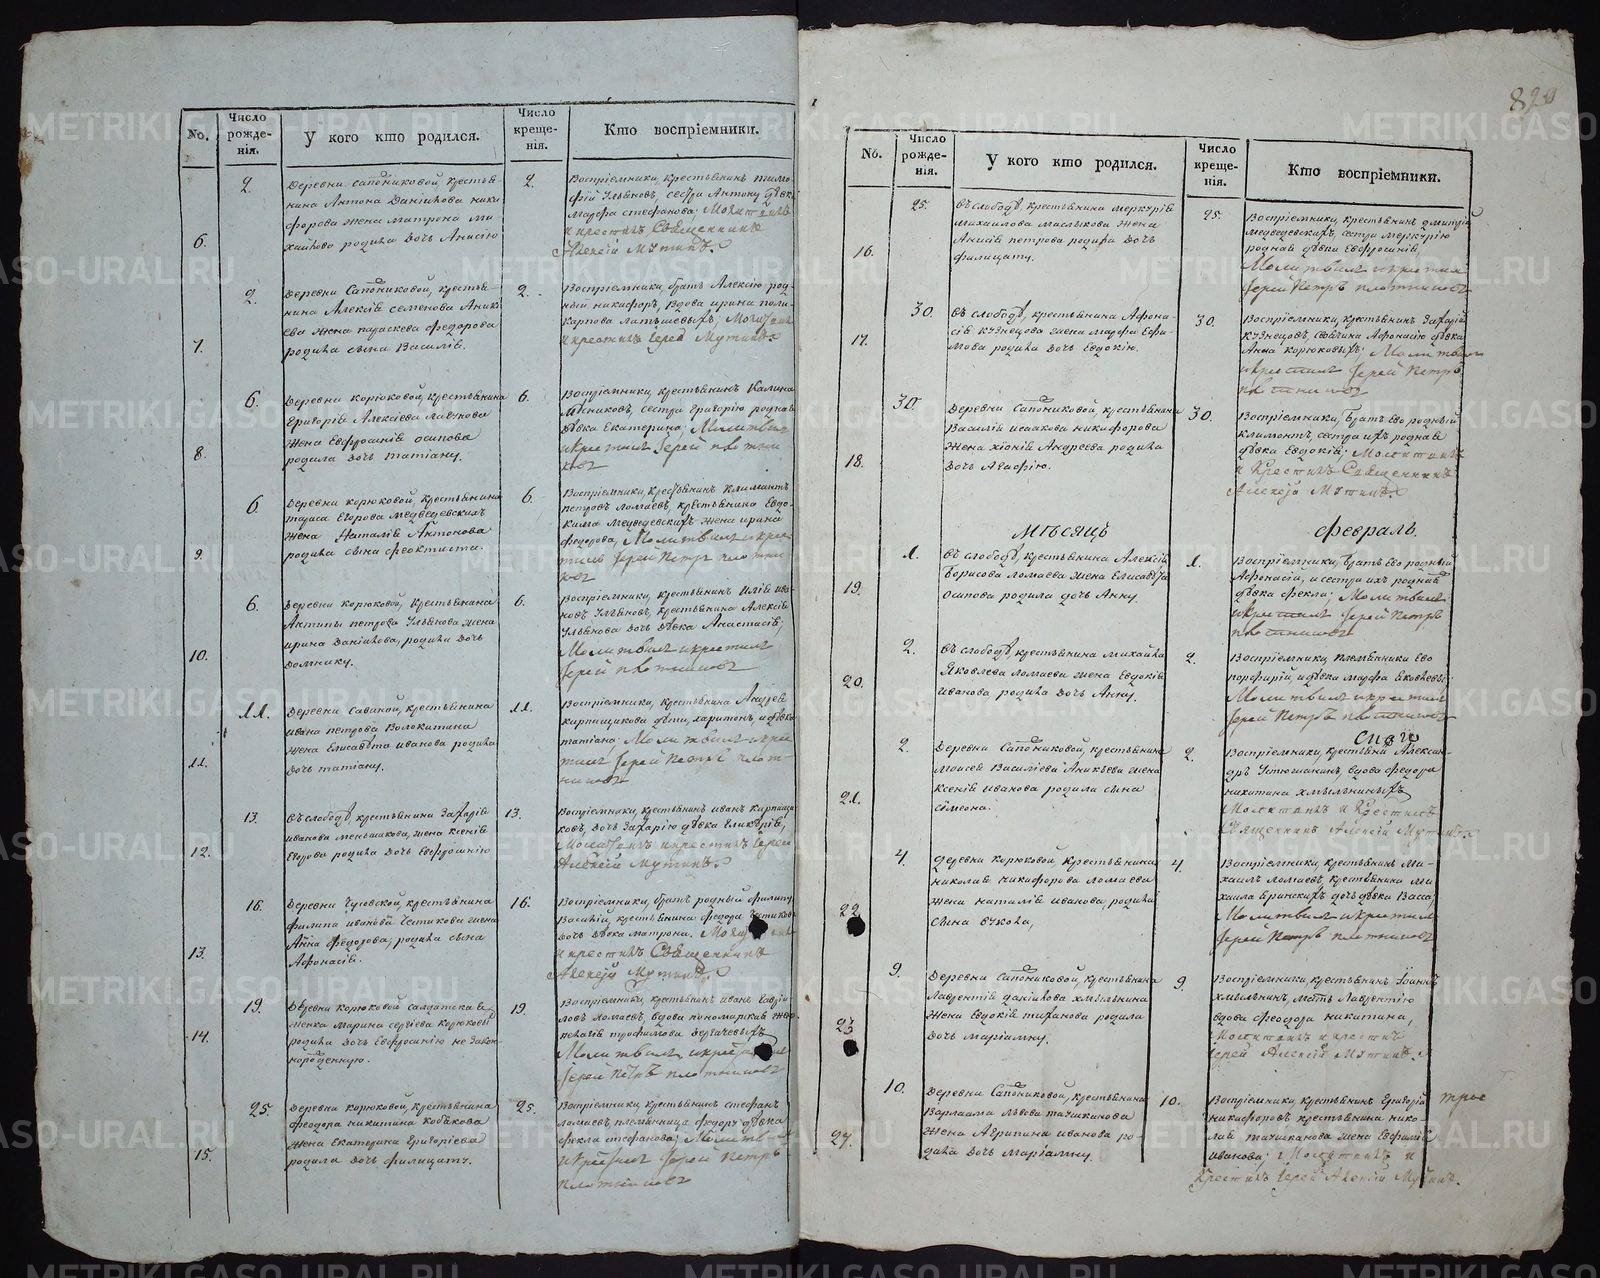 No.
Число рожде-нія.
У кого кто родился.
Число креще-нія.
Кто воспріемники.
6.
2.
Деревни Сапониковой, крестья-
нина Антона Даніилова ники-
форова жена матрона ми-
хайлова родила дочь Анисію
2.
Воспріемники, крестьянинъ тимо-
фей Ульяновъ, сестра Антону дѣвка
марфа стефанова; Молитвилъ
и крестилъ Священникъ
Алексій Мутинъ.
7.
2.
Деревни Сапониковой, крестья-
нина Алексія семенова Аники-
ева жена параскева федорова
родила сына Василія.
2.
Воспріемники, братъ Алексію род-
ный никифоръ, вдова ирина поли-
карпова латышевыхъ; Молитвилъ
и крестилъ Іерей Мутинъ.
8.
6.
Деревни корюковой, крестьянина
григорія Алексіева
жена Евфросинія осипова
родила дочь татіану.
6.
Воспріемники, крестьянинъ Калина
Мясниковъ, сестра григорію родная
дѣвка Екатерина; Молитвилъ
и крестилъ Іерей плотни-
ковъ
9.
6.
Деревни корюковой, крестьянина
тараса Егорова медведевскихъ
жена Наталія Антонова
родила сына феоктиста.
6.
Воспріемники, крестьянинъ Климантъ
петровъ ломаевъ, крестьянина Евдо-
кима медведевскихъ жена ирина
федорова; Молитвилъ и крес-
тилъ Іерей Петръ плотни-
ковъ
10.
6.
Деревни корюковой, крестьянина
Антипы петрова Ульянова жена
ирина Даніилова, родила дочь
домнику.
6.
Воспріемники, крестьянинъ Илія ива-
новъ Ульяновъ, крестьянина Алексія
Ульянова дочь дѣвка Анастасія;
Молитвилъ и крестилъ
Іерей плотниковъ
11.
11.
Деревни Савиной, крестьянина
ивана петрова Волокитина
жена Елисавета иванова родила
дочь татіану.
11.
Воспріемники, крестьянина Андрея
кирпищикова дѣти, харитонъ, и дѣвка
татіана; Молитвилъ и крес-
тилъ Іерей Петръ плот-
никовъ
12.
13.
Въ слободѣ, крестьянина Захарія
иванова меньшикова, жена ксенія
Егорова родила дочь Евфросинію
13.
Воспріемники, крестьянинъ иванъ кирпищи-
ковъ, дочь Захарію дѣвка Гликерія;
Молитвилъ и крестилъ Іерей
Алексій Мутинъ.
13.
16.
Деревни
филипа иванова жена
Анна федорова, родила сына
Афонасія.
16.
Воспріемники, братъ родный филипу
Василій, крестьянина федора
дочь дѣвка матрона.
и крестилъ Священникъ
Алексій Мутинъ.
14.
19.
Деревни корюковой солдатская
женка марина сергіева корюковы
родила дочь Евфросинію не Закон-
норожденную.
19.
Воспріемники, крестьянинъ иванъ гаври-
ловъ ломаевъ, вдова пономарская жена
пелагія трофимова
Молитвилъ и крестилъ
Іерей Петръ плотниковъ
15.
25.
Деревни корюковой, крестьянина
феодора никитина Кобякова
жена Екатерина григоріева
родила дочь филицату.
25.
Воспріемники, крестьянинъ стефанъ
ломаевъ, племянница федору дѣвка
фекла стефанова;
и крестилъ Іерей Петръ
плотниковъ
No.
Число рожде-нія.
У кого кто родился.
Число креще-нія.
Кто воспріемники.
16.
25.
Въ слободѣ, крестьянина меркурія
михаилова маслыкова жена
Анисія петрова родила дочь
филицату.
25.
Воспріемники, крестьянинъ дмитрій
медведевскихъ, сестра меркурію
родная дѣвка Евфросинія,
Молитвилъ и крестилъ
Іерей Петръ плотниковъ
17.
30.
Въ слободѣ, крестьянина Афона-
сія кузнецова жена марфа Ефи-
мова родила дочь Евдокію.
30.
Воспріемники, крестьянинъ Захарій
кузнецовъ, Афонасію дѣвка
Анна корюковыхъ; Молитвилъ
и крестилъ Іерей Петръ
плотниковъ
18.
30.
Деревни Сапониковой, крестьянина
Василія исаакова никифорова
жена хіонія Андреева родила
дочь Агафію.
30.
Воспріемники, братъ Его родный
климонтъ, сестра ихъ родная
дѣвка Евдокія; Молитвилъ
и крестилъ Священникъ
Алексій Мутинъ
Мѣсяцъ февраль.
19.
1.
Въ слободѣ, крестьянина Алексія
Борисова ломаева жена Елисавета
Осипова родила дочь Анну.
1.
Воспріемники, братъ Его родный
Афонасій, и сестра ихъ родная
дѣвка фекла; Молитвилъ
и крестилъ Іерей Петръ
плотниковъ
20.
2.
Въ слободѣ, крестьянина михаила
Яковлева ломаева жена Евдокія
иванова, родила дочь Анну.
2.
Воспріемники, племянники Его
порфирій, и дѣвка марфа Яковлевы;
Молитвилъ и крестилъ
Іерей Петръ плотниковъ
21.
2.
Деревни Сапониковой, крестьянина
моисея Василіева Аникіева жена
ксенія иванова родила сына
сімеона.
2.
Воспріемники, крестьянинъ Алексан-
дръ Устюжанинъ, вдова федора
никитина хмылниныхъ
Молитвилъ и крестилъ
Священникъ Алексій Мутинъ
22.
4.
Деревни корюковой, крестьянина
николая никифорова ломаева
жена наталія иванова, родила
сына вукола,
4.
Воспріемники, крестьянинъ ми-
хаилъ ломаевъ, крестьянина ми-
хаила Брынскихъ дочь дѣвка Васса,
Молитвилъ и крестилъ
Іерей Петръ плотниковъ
23
9.
Деревни Сапониковой, крестьянина
Лаврентія даніилова хмылнина
жена Евдокія тиханова родила
дочь маріамну.
9.
Воспріемники крестьянинъ Іоаннъ
хмылнинъ, мать Лаврентію
вдова феодора никитина,
Молитвилъ и крестилъ
Іерей Алексій Мутинъ.
24.
10.
Деревни Сапониковой, крестьянина
Варлаама львова ташкинова
жена Агрипина иванова ро-
дила дочь маріамну.
10.
Воспріемники, крестьянинъ григорій
никифоровъ, крестьянина нико-
лая ташкинова жена Евфимія
иванова; Молитвилъ и
крестилъ Іерей Алексій Мутинъ.
METRIKI.GASO-URAL.RU